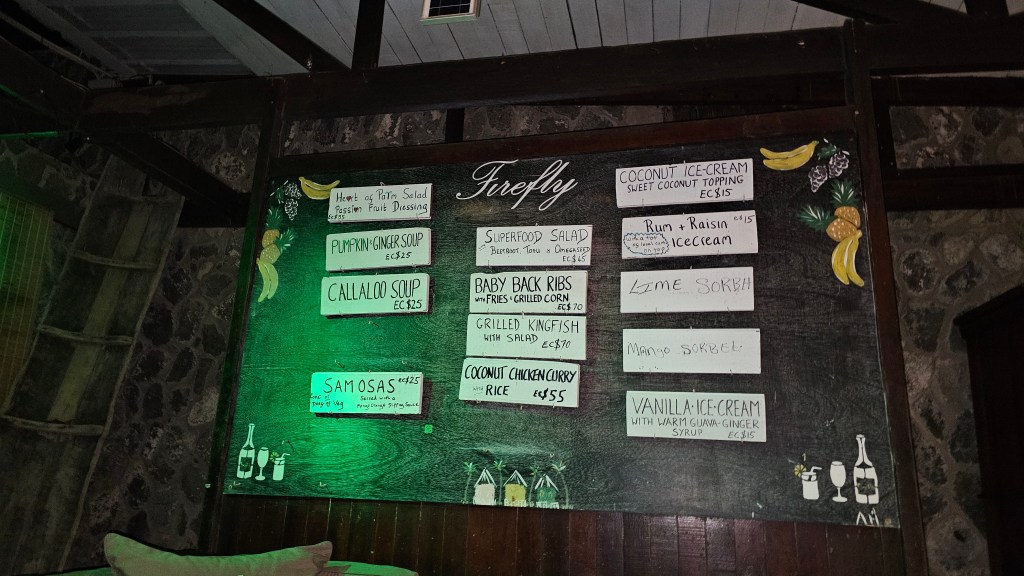 Firefly
Heart of Palm Salad
Passion Fruit Dressing
PUMPKIN + GINGER SOUP
EC$25
CALLALOO SOUP
EC$25
SAMOSAS EC$25
Served with a
Dipping Sauce
SUPERFOOD SALAD
BEETROOT, TOFU & OMEGASEED
EC$45
BABY BACK RIBS
WITH FRIES + GRILLED CORN
EC$70
GRILLED KINGFISH
WITH SALAD EC$70
COCONUT CHICKEN CURRY
WITH RICE EC$55
COCONUT ICE-CREAM
SWEET COCONUT TOPPING
EC$15
Rum + Raisin EC$15
Icecream
LIME SORB
Mango SORBET
VANILLA-ICE-CREAM
WITH WARM GUAVA-GINGER
SYRUP EC$15